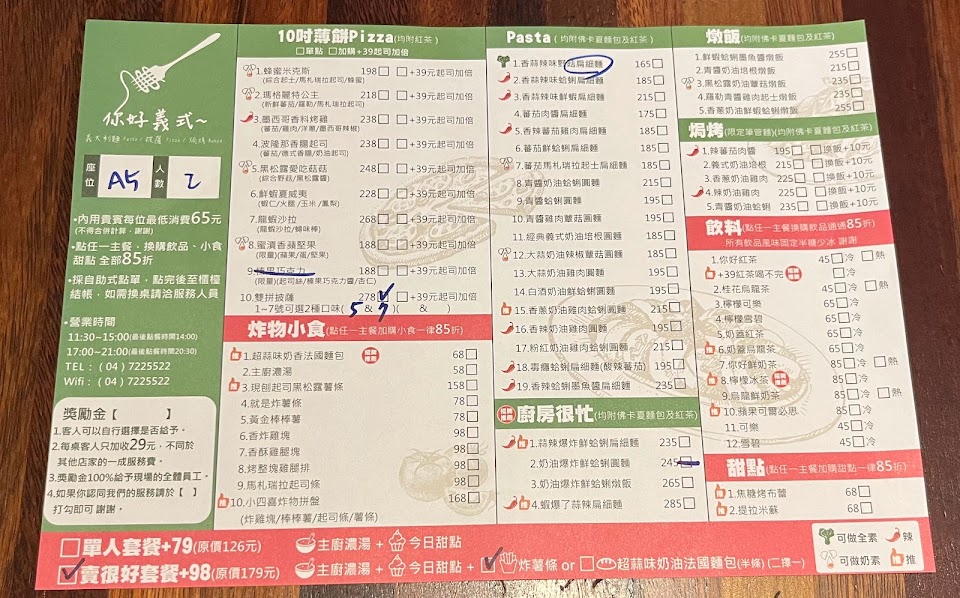 你好義式~
義大利麵 Pasta / 披薩 Pizza / 焗烤 Baked
座位 A5 人數 2
•內用貴賓每位最低消費65元
(不得合併計算，謝謝)
•點任一主餐、換購飲品、小食
甜點 全部85折
•採自助式點單，點完後至櫃檯
結帳，如需換桌請洽服務人員
•營業時間
11:30~15:00(最後點餐時間14:00)
17:00~21:00(最後點餐時間20:30)
TEL：(04) 7225522
Wifi：(04) 7225522
獎勵金【 】
1.客人可以自行選擇是否給予。
2.每桌客人只加收29元，不同於
其他店家的一成服務費。
3.獎勵金100%給予現場的全體員工。
4.如果你認同我們的服務請於【 】
打勾即可 謝謝。
10吋薄餅Pizza(均附紅茶)
□單點 □加購+39起司加倍
1.蜂蜜米克斯 198□ □+39元起司加倍
(綜合起士/馬札瑞拉起司/蜂蜜)
2.瑪格麗特公主 218□ □+39元起司加倍
(新鮮番茄/羅勒/馬札瑞拉起司)
3.墨西哥香料烤雞 238□ □+39元起司加倍
(番茄/雞肉/洋蔥/墨西哥辣椒)
4.波隆那香腸起司 238□ □+39元起司加倍
(番茄/德式香腸/奶油起司)
5.黑松露愛吃菇菇 248□ □+39元起司加倍
(綜合野菇/黑松露醬)
6.鮮蝦夏威夷 228□ □+39元起司加倍
(蝦仁/火腿/玉米/鳳梨)
7.龍蝦沙拉 268□ □+39元起司加倍
(龍蝦沙拉/蟳味棒)
8.蜜漬香蘋堅果 188□ □+39元起司加倍
(限量)(蘋果/蛋/堅果)
9.榛果巧克力 188□ □+39元起司加倍
(限量)(起司絲/榛果巧克力醬/杏仁)
10.雙拼披薩 278□ □+39元起司加倍
1~7號可選2種口味( 5 & 7 )( & )
炸物小食(點任一主餐加購小食一律85折)
1.超蒜味奶香法國麵包 68□
2.主廚濃湯 58□
3.現刨起司黑松露薯條 158□
4.就是炸薯條 78□
5.黃金棒棒薯 78□
6.香炸雞塊 98□
7.香酥雞腿塊 98□
8.烤整塊雞腿排 98□
9.馬札瑞拉起司條 98□
10.小四喜炸物拼盤 168□
(炸雞塊/棒棒薯/起司條/薯條)
Pasta(均附佛卡夏麵包及紅茶)
1.香蒜辣味野菇扁細麵 165□
2.香蒜辣味蛤蜊扁細麵 185□
3.香蒜辣味鮮蝦扁細麵 215□
4.蕃茄肉醬扁細麵 175□
5.香辣蕃茄雞肉扁細麵 185□
6.蕃茄鮮蛤蜊扁細麵 185□
7.蕃茄馬札瑞拉起士扁細麵 185□
8.青醬奶油蛤蜊圓麵 215□
9.青醬蛤蜊圓麵 195□
10.青醬雞肉蘑菇圓麵 195□
11.經典義式奶油培根圓麵 195□
12.大蒜奶油辣椒蘑菇圓麵 195□
13.大蒜奶油雞肉圓麵 195□
14.白酒奶油鮮蛤蜊圓麵 195□
15.香蔥奶油雞肉蛤蜊圓麵 215□
16.香辣奶油雞肉圓麵 195□
17.粉紅奶油雞肉蛤蜊圓麵 215□
18.毒癮蛤蜊扁細麵(酸辣蕃茄) 195□
19.香辣蛤蜊墨魚醬扁細麵 235□
廚房很忙(均附佛卡夏麵包及紅茶)
1.蒜辣爆炸鮮蛤蜊扁細麵 235□
2.奶油爆炸鮮蛤蜊圓麵 245□
3.奶油爆炸鮮蛤蜊燉飯 265□
4.蝦爆了蒜辣扁細麵 285□
燉飯(均附佛卡夏麵包及紅茶)
1.鮮蝦蛤蜊墨魚醬燉飯 255□
2.青醬奶油培根燉飯 215□
3.黑松露奶油蘑菇燉飯 235□
4.羅勒青醬雞肉起士燉飯 235□
5.香蔥奶油鮮蝦蛤蜊燉飯 255□
焗烤(限定筆管麵)(均附佛卡夏麵包及紅茶)
1.辣蕃茄肉醬 215□ □換飯+10元
2.義式奶油培根 215□ □換飯+10元
3.香蔥奶油雞肉 225□ □換飯+10元
4.辣奶油雞肉 225□ □換飯+10元
5.青醬奶油蛤蜊 235□ □換飯+10元
飲料(點任一主餐換購飲品通通85折)
所有飲品風味固定半糖少冰 謝謝
1.你好紅茶 45□冷 □熱
+39紅茶喝不完
2.桂花烏龍茶 65□冷 □熱
3.檸檬可樂 65□冷
4.檸檬雪碧 65□冷
5.奶蓋紅茶 65□冷
6.奶蓋烏龍茶 65□冷
7.你好鮮奶茶 85□冷 □熱
8.檸檬冰茶 85□冷
9.烏龍鮮奶茶 85□冷 □熱
10.蘋果可爾必思 85□冷
11.可樂 45□冷
12.雪碧 45□冷
甜點(點任一主餐加購甜點一律85折)
1.焦糖烤布蕾 68□
2.提拉米蘇 68□
□單人套餐+79(原價126元) 主廚濃湯 + 今日甜點
☑賣很好套餐+98(原價179元) 主廚濃湯 + 今日甜點 + ☑炸薯條 or □超蒜味奶油法國麵包(半條)(二擇一)
可做全素 辣
可做奶素 推